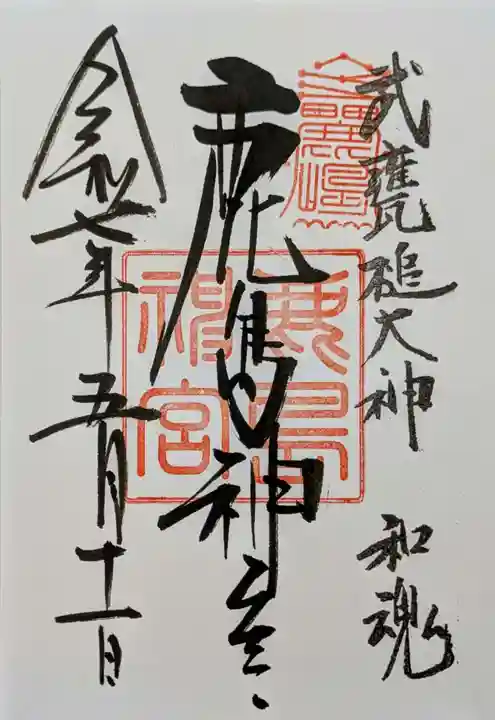 武甕槌大神 和魂
鹿島神宮
鹿島
神宮
令和七年五月十一日